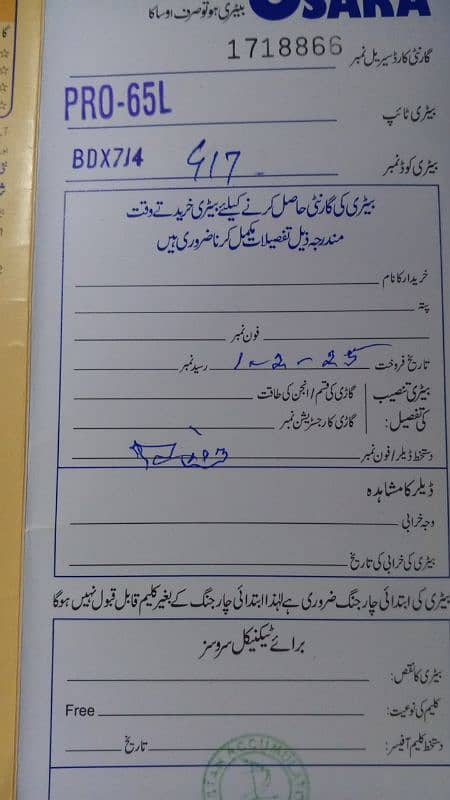 OSAKA
بیٹری ہو تو صرف اوساکا
گارنٹی کارڈ سیریل نمبر 1718866
بیٹری ٹائپ PRO-65L
بیٹری کوڈ نمبر BDX7/4 G17
بیٹری کی گارنٹی حاصل کرنے کیلئے بیٹری خریدتے وقت
مندرجہ ذیل تفصیلات مکمل کرنا ضروری ہیں
خریدار کا نام
پتہ
فون نمبر
تاریخ فروخت 1-2-25 رسید نمبر
بیٹری تنصیب گاڑی کی قسم/انجن کی طاقت
کی تفصیل: گاڑی کا رجسٹریشن نمبر
دستخط ڈیلر/فون نمبر
ڈیلر کا مشاہدہ
وجہ خرابی
بیٹری کی خرابی کی تاریخ
بیٹری کی ابتدائی چارجنگ ضروری ہے لہٰذا ابتدائی چارجنگ کے بغیر کلیم قابل قبول نہیں ہوگا
برائے ٹیکنیکل سروسز
بیٹری کا نقص:
کلیم کی نوعیت: Free
دستخط کلیم آفیسر: تاریخ